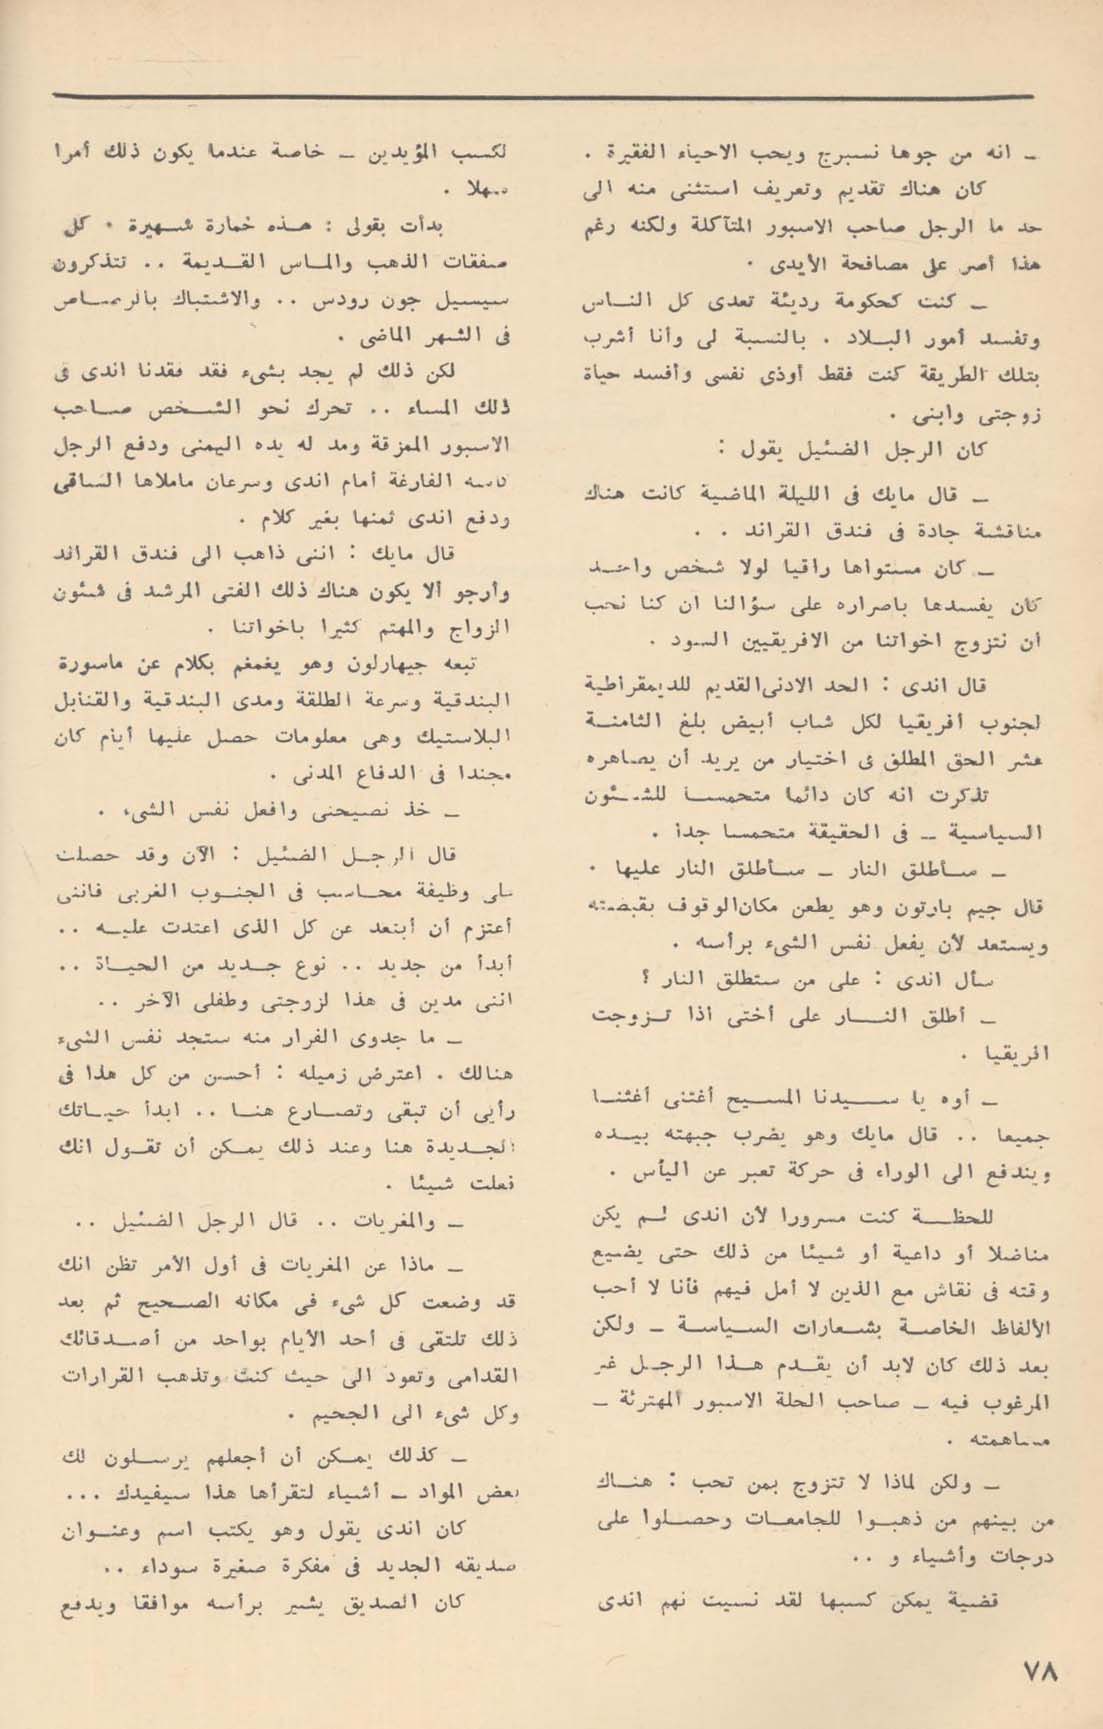 ـ انه من جوها نسبرج ويحب الاحياء الفقيرة .
كان هناك تقديم وتعريف استثنى منه الى
حد ما الرجل صاحب الاسبور المتآكلة ولكنه رغم
هذا أصر على مصافحة الأيدى .
ـ كنت كحكومة رديئة تعدى كل النـاس
وتفسد أمور البـلاد . بالنسبة لى وأنا أشرب
بتلك الطريقة كنت فقط أوذى نفسى وأفسد حياة
زوجتى وابنى .
كان الرجل الضئيل يقول :
ـ قال مايك فى الليلة الماضية كانت هناك
مناقشة جادة فى فندق القراند . .
ـ كان مستواها راقيا لولا شخص واحـد
كان يفسدها باصراره على سؤالنا ان كنا نحب
ان نتزوج اخواتنا من الافريقيين السود .
قال اندى : الحد الادنى القديم للديمقراطية
لجنوب أفريقيا لكل شاب أبيض بلغ الثامنـة
عشر الحق المطلق فى اختيار من يريد أن يصاهره
تذكرت انه كان دائما متحمسـا للشـئون
السياسية ـ فى الحقيقة متحمسا جدا .
ـ سـأطلق النار ـ سـأطلق النار عليها .
قال جيم بارتون وهو يطعن مكان الوقوف بقبضته
ويستعد لأن يفعل نفس الشىء برأسه .
سأل اندى : على من ستطلق النار ؟
ـ أطلق النـــار على أختى اذا تـزوجت
افريقيا .
ـ أوه يا سـيدنا المسيح أغثنى أغثنـا
جميعا .. قال مايك وهو يضرب جبهته بيـده
ويندفع الى الوراء فى حركة تعبر عن اليأس .
للحظــة كنت مسرورا لأن اندى لـم يكن
مناضلا أو داعية أو شيئا من ذلك حتى يضيع
وقته فى نقاش مع الذين لا أمل فيهم فأنا لا أحب
الألفاظ الخاصـة بشـعارات السـياسـة ـ ولكن
بعد ذلك كان لابد أن يقـدم هـذا الرجـل غير
المرغوب فيه ـ صاحب الحلة الاسبور المهترئة ـ
مساهمته .
ـ ولكن لماذا لا تتزوج بمن تحب : هنـاك
من بينهم من ذهبـوا للجامعـات وحصـلوا على
درجات وأشياء و ..
قضية يمكن كسبها لقد نسيت نهم اندى
لكسب المؤيدين ـ خاصة عندما يكون ذلك أمرا
سهلا .
بدأت بقولى : هـذه خمارة شـهيرة . كل
صفقات الذهب والمـاس القـديمة .. تتذكرون
سيسيل جون رودس .. والاشتباك بالرصـاص
فى الشهر الماضى .
لكن ذلك لم يجد بشىء فقد فقدنا اندى فى
ذلك المساء .. تحرك نحو الشـخص صـاحب
الاسبور الممزقة ومد له يده اليمنى ودفع الرجل
كاسه الفارغة أمام اندى وسرعان ماملاها الساقى
ودفع اندى ثمنها بغير كلام .
قال مايك : اننى ذاهب الى فندق القراند
وأرجو ألا يكون هناك ذلك الفتى المرشد فى شئون
الزواج والمهتم كثيرا باخواتنا .
تبعه جيهارلون وهو يغمغم بكلام عن ماسورة
البندقية وسرعة الطلقة ومدى البندقية والقنابل
البلاستيك وهى معلومات حصل عليها أيام كان
مجندا فى الدفاع المدنى .
ـ خذ نصيحتى وافعل نفس الشىء .
قال الرجـل الضئيل : الآن وقد حصلت
على وظيفة محـاسب فى الجنـوب الغربى فاننى
أعتزم أن أبتعد عن كل الذى اعتدت عليـه ..
أبدأ من جديد .. نوع جـديد من الحيـاة ..
اننى مدين فى هذا لزوجتى وطفلى الآخر ..
ـ ما جدوى الفرار منه ستجد نفس الشىء
هنالك . اعترض زميله : أحسن من كل هذا فى
رأيى أن تبقى وتصـارع هنـا .. ابدأ حيـاتك
الجـديدة هنا وعند ذلك يمـكن أن تقـول انك
فعلت شيئا .
ـ والمغريات .. قال الرجل الضئيل ..
ـ ماذا عن المغريات فى أول الأمر تظن انك
قد وضعت كل شىء فى مكانه الصـحيح ثم بعد
ذلك تلتقى فى أحد الأيام بواحد من أصـدقائك
القدامى وتعود الى حيث كنت وتذهب القرارات
وكل شىء الى الجحيم .
ـ كذلك يمـكن أن أجعلهم يرسـلون لك
بعض المواد ـ أشياء لتقرأها هذا سيفيدك ...
كان اندى يقول وهو يكتب اسم وعنـوان
صديقه الجديد فى مفكرة صغيرة سوداء ..
كان الصديق يشير برأسه موافقا ويدفع
٧٨